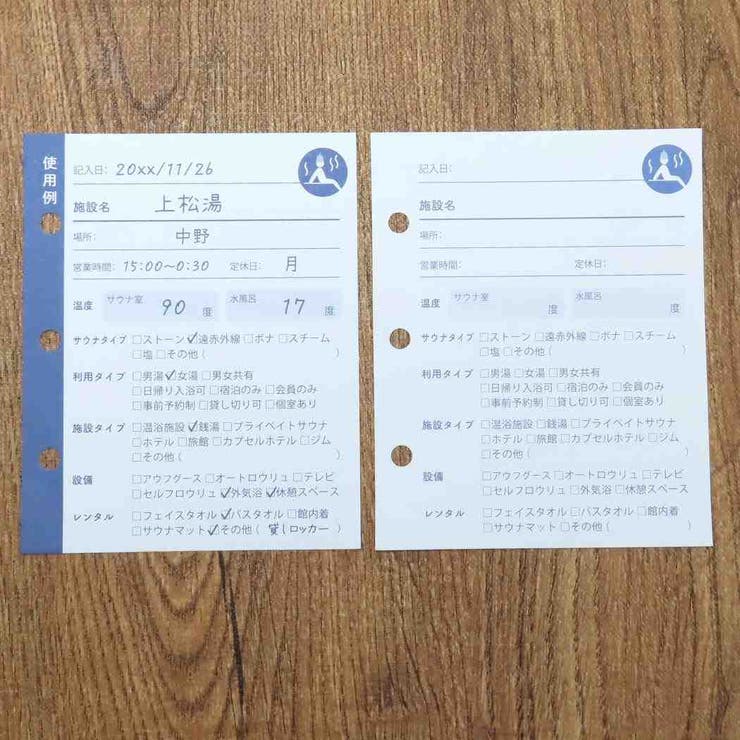 使用例
記入日: 20xx/11/26
施設名 上松湯
場所: 中野
営業時間: 15:00〜0:30 定休日: 月
温度 サウナ室 90 度 水風呂 17 度
サウナタイプ □ストーン ☑遠赤外線 □ボナ □スチーム
□塩 □その他( )
利用タイプ □男湯 ☑女湯 □男女共有
□日帰り入浴可 □宿泊のみ □会員のみ
□事前予約制 □貸し切り可 □個室あり
施設タイプ □温浴施設 ☑銭湯 □プライベイトサウナ
□ホテル □旅館 □カプセルホテル □ジム
□その他( )
設備 □アウフグース □オートロウリュ □テレビ
□セルフロウリュ ☑外気浴 ☑休憩スペース
レンタル □フェイスタオル ☑バスタオル □館内着
□サウナマット ☑その他( 貸しロッカー )
記入日:
施設名
場所:
営業時間: 定休日:
温度 サウナ室 度 水風呂 度
サウナタイプ □ストーン □遠赤外線 □ボナ □スチーム
□塩 □その他( )
利用タイプ □男湯 □女湯 □男女共有
□日帰り入浴可 □宿泊のみ □会員のみ
□事前予約制 □貸し切り可 □個室あり
施設タイプ □温浴施設 □銭湯 □プライベイトサウナ
□ホテル □旅館 □カプセルホテル □ジム
□その他( )
設備 □アウフグース □オートロウリュ □テレビ
□セルフロウリュ □外気浴 □休憩スペース
レンタル □フェイスタオル □バスタオル □館内着
□サウナマット □その他( )